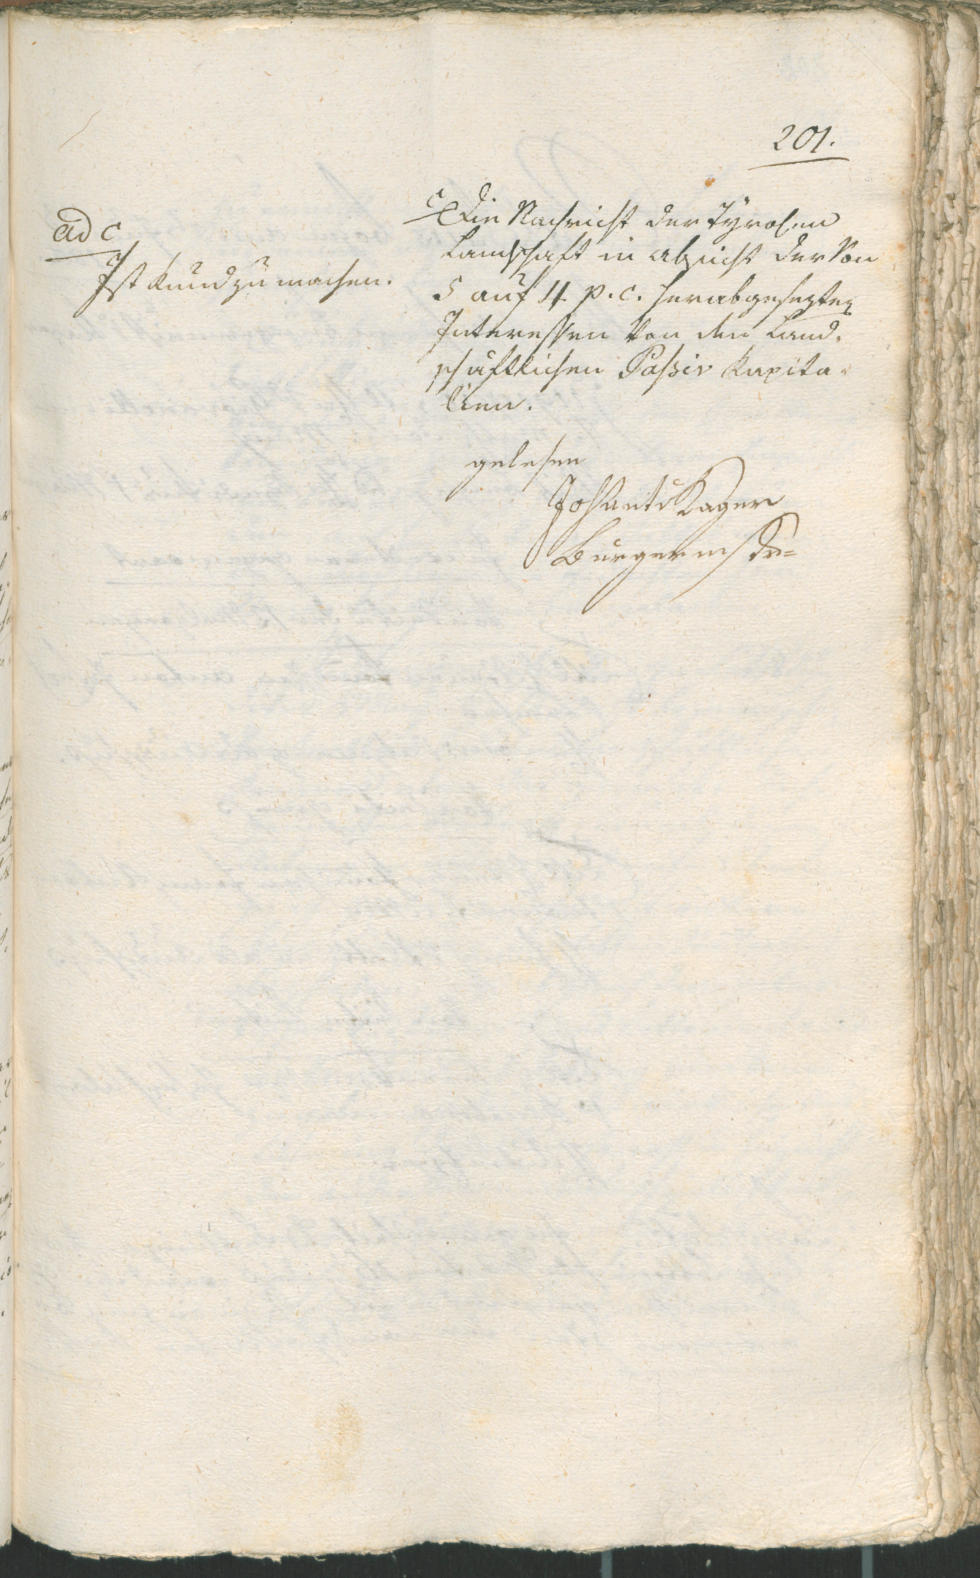 201.
ad c
Ist kund zu machen.
c Die Nachricht der Tyrolen
Landschaft in absicht der von
5 auf 4 p. c. herabgesezten
Interessen von den Land-
schäftlichen Passiv Kapita-
lien.
gelesen
Joh Kager
Burgermstr